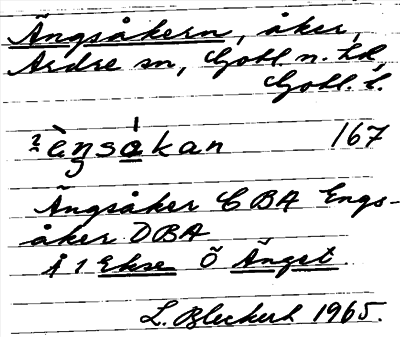 Ängsåkern, åker,
Ardre sn, Gotl. n. hd,
Gotl. l.
²èŋsa̲kan 167
Ängsåker CBA Engs-
åker DBA
Å 1 Ekse Ö Ängst.
L. Bleckert 1965.